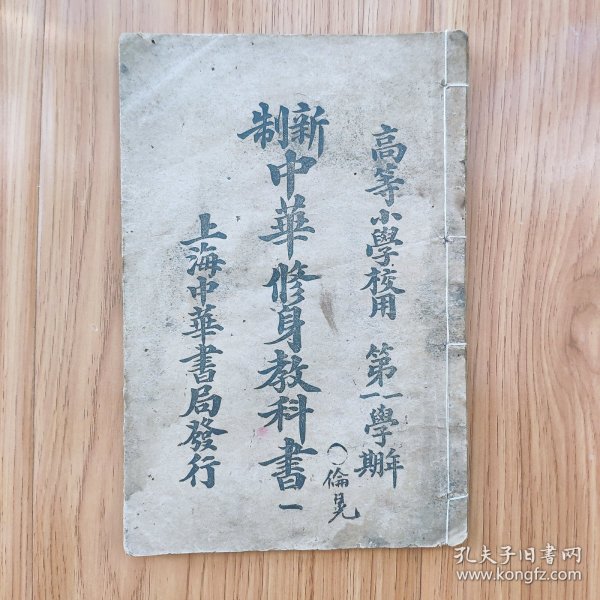 高等小學校用 第一學年第一學期
新制中華修身教科書一
上海中華書局發行
孔夫子旧书网
www.kongfz.com